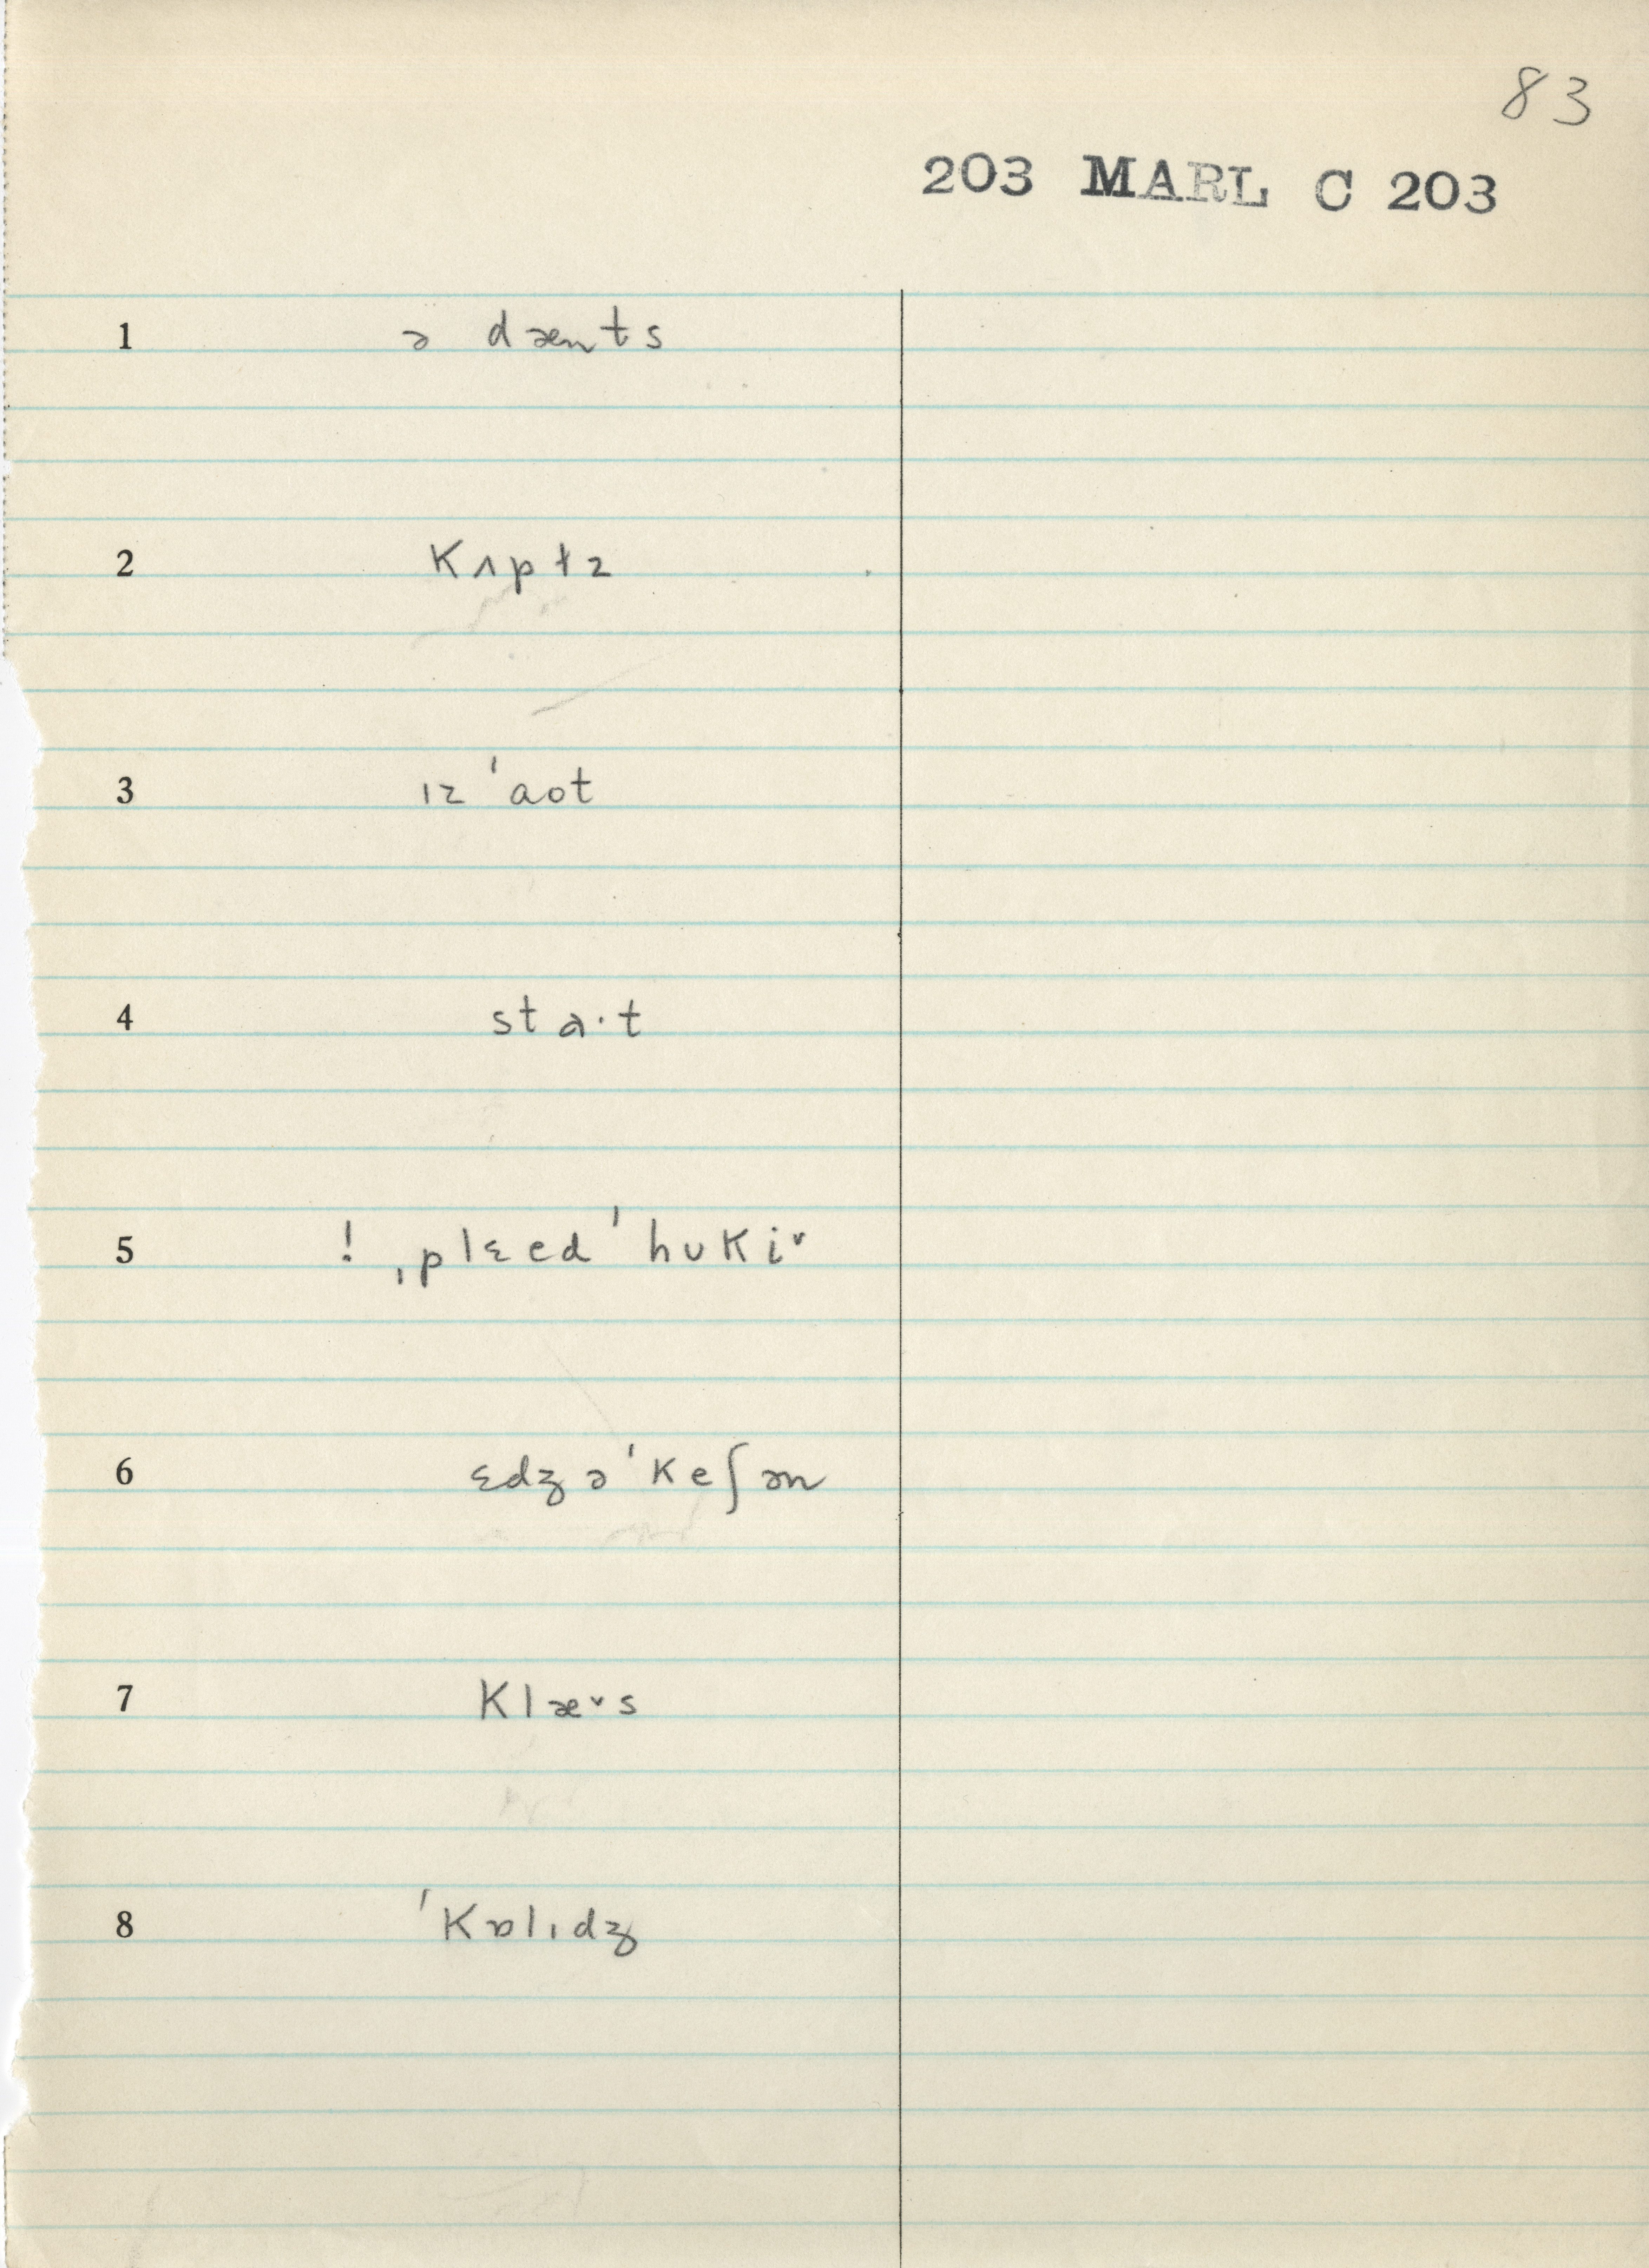 83
203 MARL C 203
1 ə dænts
2 kʌptɪz
3 ɪz ˈaot
4 sta·t
5 ! ˌplɛedˈhʊkiˑ
6 ɛdʒəˈkeʃən
7 klæˑs
8 ˈkɒlɪdʒ